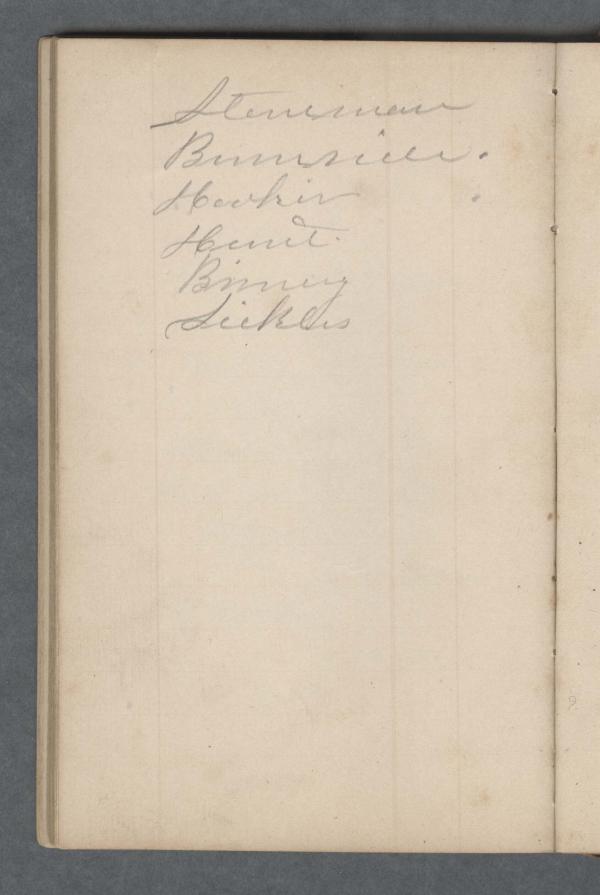 Stoneman
Burnside.
Hooker
Hunt.
Birney
Sickles